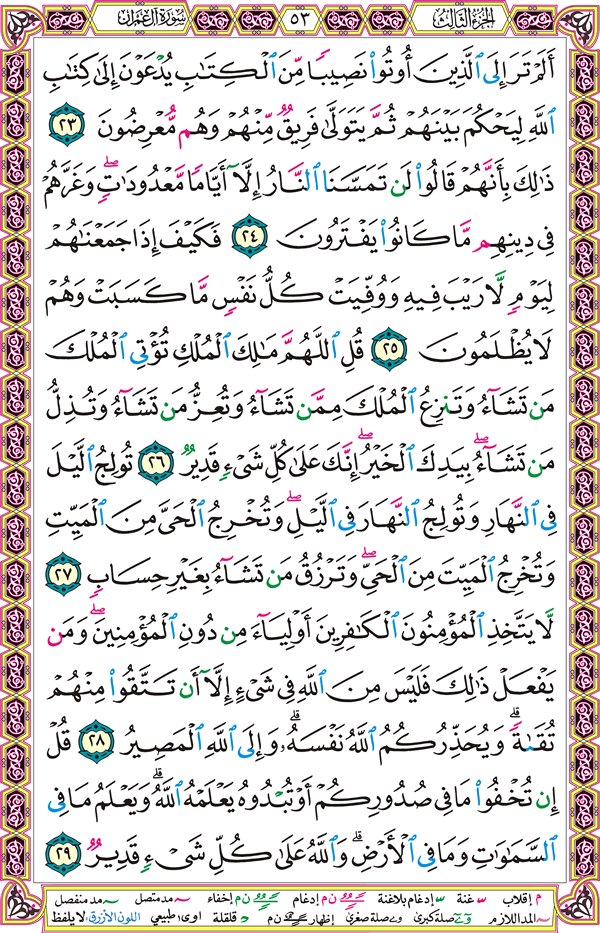 الجزء الثالث ٥٣ سورة آل عمران
أَلَمْ تَرَ إِلَى ٱلَّذِينَ أُوتُوا۟ نَصِيبًا مِّنَ ٱلْكِتَـٰبِ يُدْعَوْنَ إِلَىٰ كِتَـٰبِ
ٱللَّهِ لِيَحْكُمَ بَيْنَهُمْ ثُمَّ يَتَوَلَّىٰ فَرِيقٌ مِّنْهُمْ وَهُم مُّعْرِضُونَ ٢٣
ذَٰلِكَ بِأَنَّهُمْ قَالُوا۟ لَن تَمَسَّنَا ٱلنَّارُ إِلَّآ أَيَّامًا مَّعْدُودَٰتٍ ۖ وَغَرَّهُمْ
فِى دِينِهِم مَّا كَانُوا۟ يَفْتَرُونَ ٢٤ فَكَيْفَ إِذَا جَمَعْنَـٰهُمْ
لِيَوْمٍ لَّا رَيْبَ فِيهِ وَوُفِّيَتْ كُلُّ نَفْسٍ مَّا كَسَبَتْ وَهُمْ
لَا يُظْلَمُونَ ٢٥ قُلِ ٱللَّهُمَّ مَـٰلِكَ ٱلْمُلْكِ تُؤْتِى ٱلْمُلْكَ
مَن تَشَآءُ وَتَنزِعُ ٱلْمُلْكَ مِمَّن تَشَآءُ وَتُعِزُّ مَن تَشَآءُ وَتُذِلُّ
مَن تَشَآءُ ۖ بِيَدِكَ ٱلْخَيْرُ ۖ إِنَّكَ عَلَىٰ كُلِّ شَىْءٍ قَدِيرٌ ٢٦ تُولِجُ ٱلَّيْلَ
فِى ٱلنَّهَارِ وَتُولِجُ ٱلنَّهَارَ فِى ٱلَّيْلِ ۖ وَتُخْرِجُ ٱلْحَىَّ مِنَ ٱلْمَيِّتِ
وَتُخْرِجُ ٱلْمَيِّتَ مِنَ ٱلْحَىِّ ۖ وَتَرْزُقُ مَن تَشَآءُ بِغَيْرِ حِسَابٍ ٢٧
لَّا يَتَّخِذِ ٱلْمُؤْمِنُونَ ٱلْكَـٰفِرِينَ أَوْلِيَآءَ مِن دُونِ ٱلْمُؤْمِنِينَ ۖ وَمَن
يَفْعَلْ ذَٰلِكَ فَلَيْسَ مِنَ ٱللَّهِ فِى شَىْءٍ إِلَّآ أَن تَتَّقُوا۟ مِنْهُمْ
تُقَىٰةً ۗ وَيُحَذِّرُكُمُ ٱللَّهُ نَفْسَهُۥ ۗ وَإِلَى ٱللَّهِ ٱلْمَصِيرُ ٢٨ قُلْ
إِن تُخْفُوا۟ مَا فِى صُدُورِكُمْ أَوْ تُبْدُوهُ يَعْلَمْهُ ٱللَّهُ ۗ وَيَعْلَمُ مَا فِى
ٱلسَّمَـٰوَٰتِ وَمَا فِى ٱلْأَرْضِ ۗ وَٱللَّهُ عَلَىٰ كُلِّ شَىْءٍ قَدِيرٌ ٢٩
م إقلاب غنة إدغام بلاغنة ن م إدغام ن م إخفاء مد متصل مد منفصل
المد اللازم صلة كبرى صلة صغرى إظهار ن م قلقلة اوى طبيعي اللون الأزرق: لا يلفظ